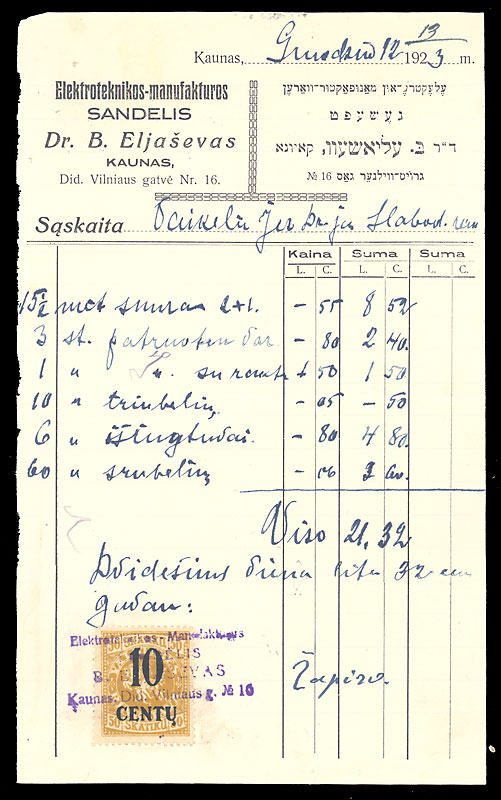 13
Kaunas, Gruodžio 12 1923 m.
Elektroteknikos-manufakturos
SANDELIS
Dr. B. Eljaševas
KAUNAS,
Did. Vilniaus gatvė Nr. 16.
עלעקטרע־און מאנופאקטור־ווארען
געשעפט
ד״ר ב. עליאשעוו, קאוונא
גרויס־ווילנער גאס 16 №
Sąskaita Vaikelių Slabod.
Kaina Suma Suma
L. C. L. C. L. C.
15½ met snura 2+1. – 55 8 52
3 st. patruoten – 80 2 40.
1 " " su 1 50 1 50
10 " triubelių – 05 – 50
6 " išlugtudai. – 80 4 80.
60 " srubelių – 06 3 60.
Viso 21, 32
Dvidešims viena lita 32 cen
gavau:
Elektroteknikos Manufakturos
SANDELIS
B. ELJAŠEVAS
Kaunas, Did. Vilniaus g. № 16
10
CENTŲ
50 SKATIKŲ 50
Šapiro.